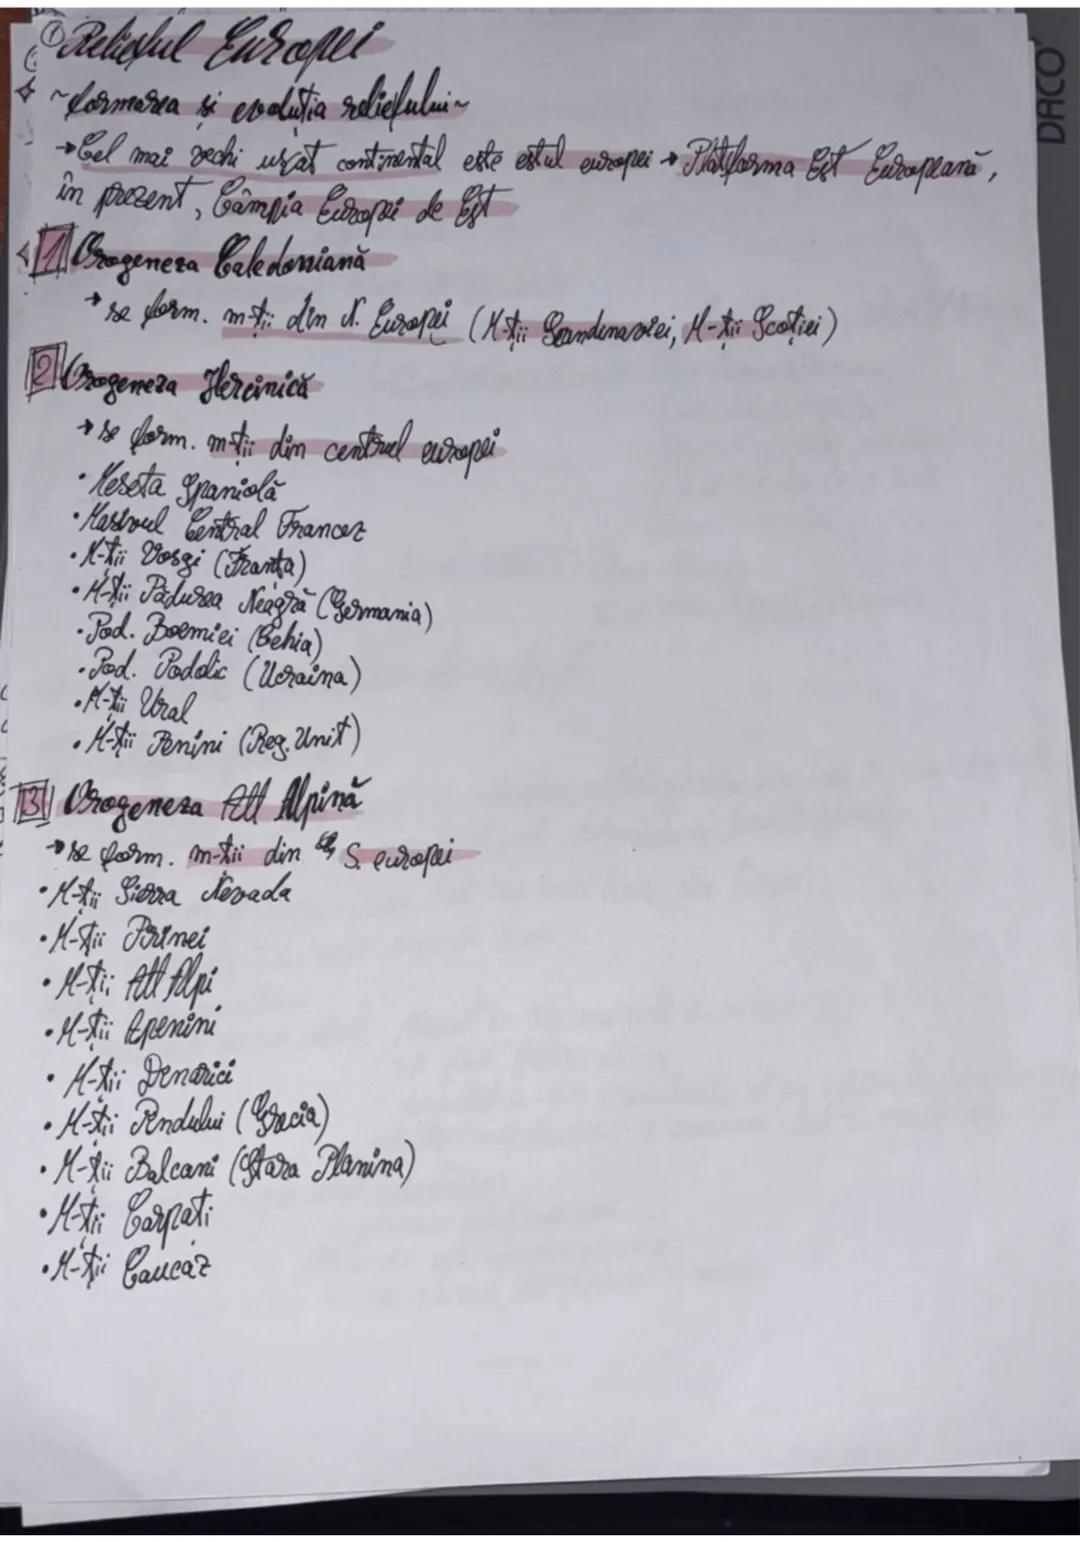 ① Relieful Europei
~formarea și evoluția reliefului~
→Cel mai vechi uscat continental este estul europei → Platforma Est Europeană,
în prezent, Câmpia Europei de Est
1 Orogeneza Caledoniană
→ se form. m-ții din N. Europei (M-ții Scandinaviei, M-ții Scoției)
2 Orogeneza Hercinică
→ se form. m-ții din centrul europei
• Meseta Spaniolă
• Masivul Central Francez
• M-ții Vosgi (Franța)
• M-ții Pădurea Neagră (Germania)
• Pod. Boemiei (Cehia)
• Pod. Podolic (Ucraina)
• M-ții Ural
• M-ții Penini (Reg. Unit)
3 Orogeneza Alpină
→ se form. m-ții din S. europei
• M-ții Sierra Nevada
• M-ții Pirinei
• M-ții Alpi
• M-ții Apenini
• M-ții Dinarici
• M-ții Pindului (Grecia)
• M-ții Balcani (Stara Planina)
• M-ții Carpați
• M-ții Caucaz
DACO